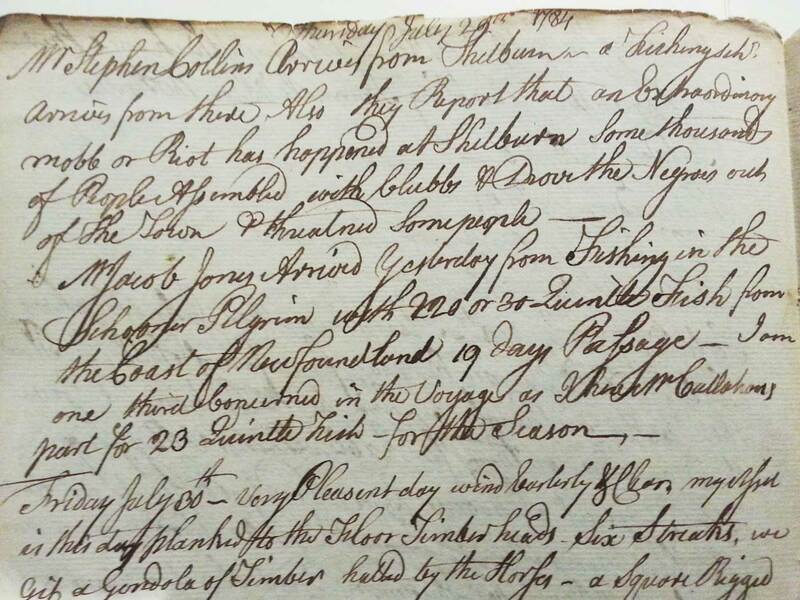 Thursday July 29th 1784
Mr Stephen Collins Arrives from Shelburn – a Fishing schr
arrives from there Also they Report that an Extraordinary
mobb or Riot has happened at Shelburn Some thousands
of People Assembled with Clubbs & Drove the Negroes out
of The Town & threatned Some people —
Mr Jacob Jones Arrived Yesterday from Fishing in the
Schooner Pilgrim with 220 or 30 Quintle Fish from
the Coast of Newfoundland 19 days Passage – I am
one third Concerned in the Voyage as I have Mr Callahans
part for 23 Quintle Fish – for the Season —
Friday July 30th – Very Pleasent day wind Easterly & Clear, my
is this day planked to the Floor Timber heads – Six Streaks, we
Git a Gondola of Timber halled by the Horses – a Square Rigged